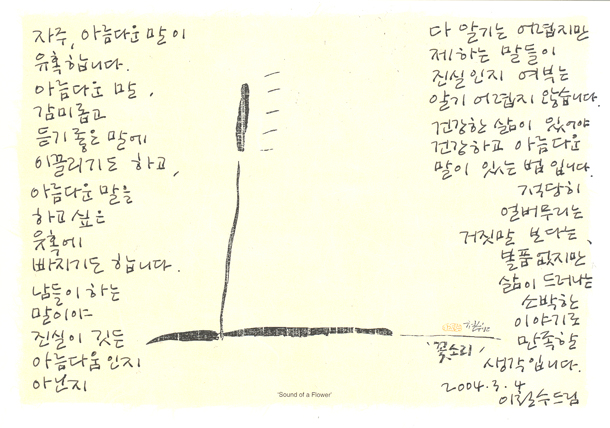 자주, 아름다운 말이
유혹합니다.
아름다운 말,
감미롭고
듣기 좋은 말에
이끌리기도 하고,
아름다운 말을
하고 싶은
유혹에
빠지기도 합니다.
남들이 하는
말이야
진실이 깃든
아름다움인지
아닌지
다 알기는 어렵지만
제 하는 말들이
진실인지 여부는
알기 어렵지 않습니다.
건강한 삶이 있어야
건강하고 아름다운
말이 있는 법입니다.
적당히
얼버무리는
거짓말 보다는,
볼품 없지만
삶이 드러나는
소박한
이야기로
만족할
생각입니다.
2004.3.4
이철수 드림
'꽃소리'
'Sound of a Flower'